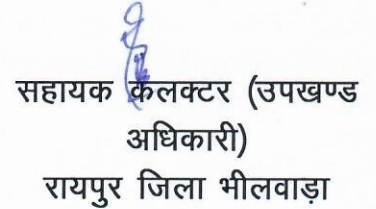 सहायक कलक्टर (उपखण्ड
अधिकारी)
रायपुर जिला भीलवाड़ा